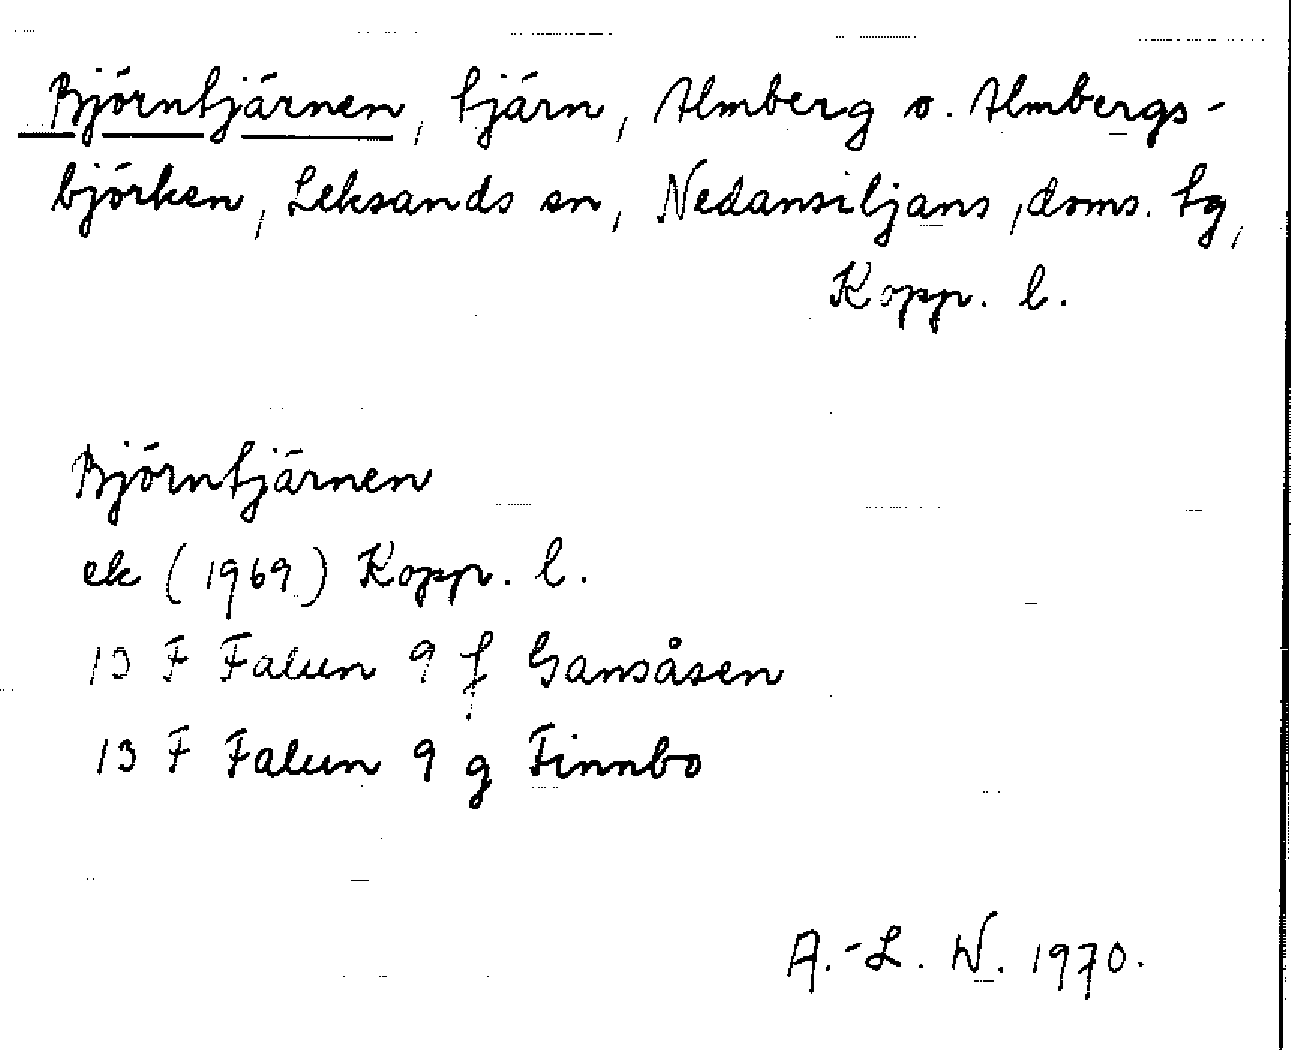 Björntjärnen, tjärn, Almberg o. Almbergs-
björken, Leksands sn, Nedansiljans, doms. tg,
Kopp. l.
Björntjärnen
ek (1969) Kopp. l.
13 F Falun 9 f Gansåsen
13 F Falun 9 g Finnbo
A.-L. W. 1970.